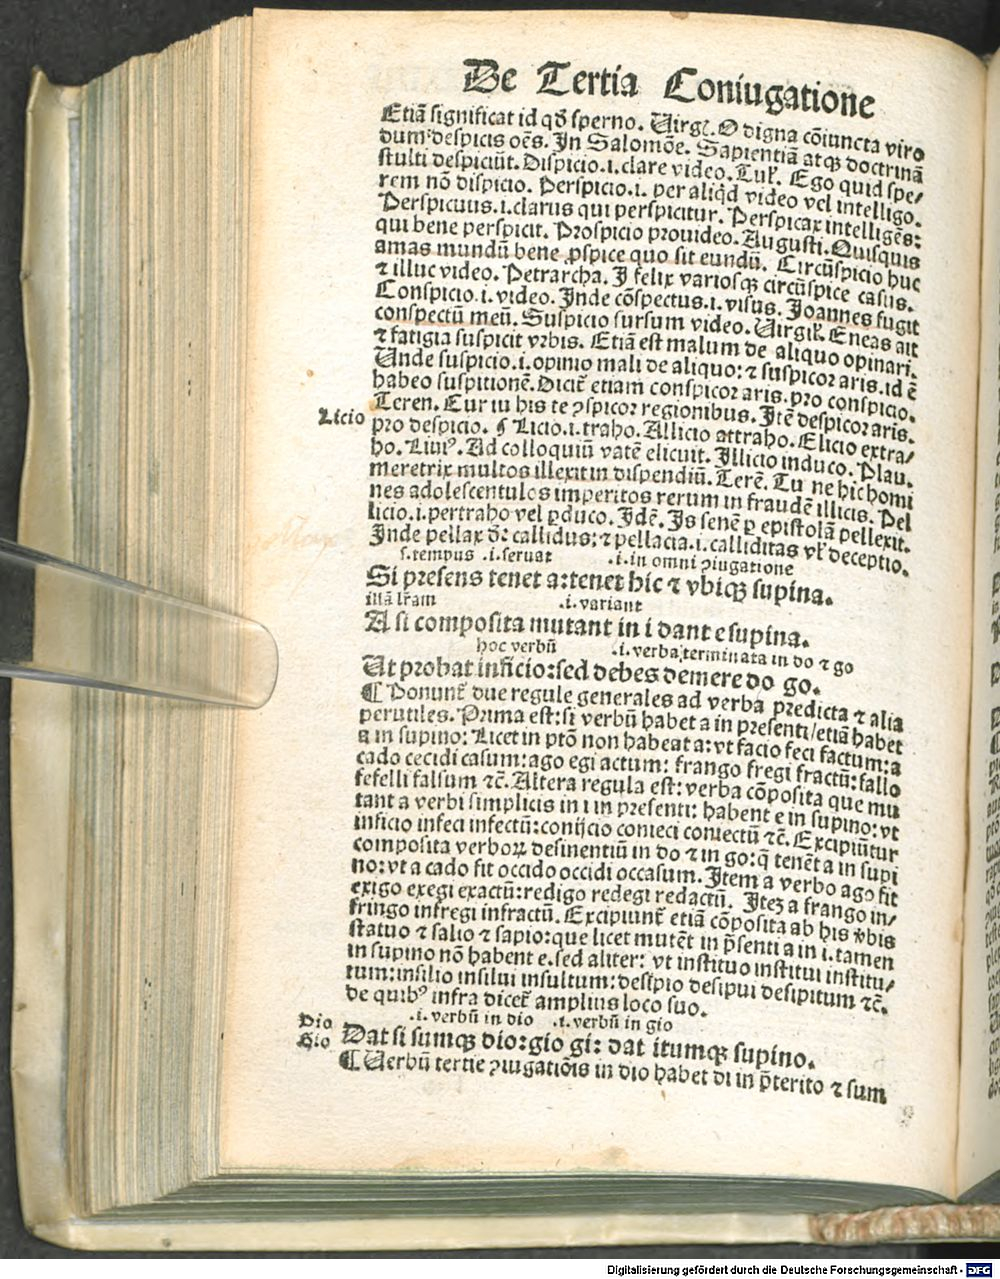 De Tertia Coniugatione
Etiã significat id qđ sperno. Uirgł. O digna cõiuncta viro
dum despicis oẽs. In Salomõe. Sapientiã atqꝫ doctrinã
stulti despiciũt. Dispicio.i.clare video. Tuł. Ego quid spe/
rem nõ dispicio. Perspicio.i. per aliqͥd video vel intelligo.
Perspicuus.i.clarus qui perspicitur. Perspicax intelligẽs:
qui bene perspicit. Prospicio prouideo. Augusti. Quisquis
amas mundũ bene ꝓspice quo sit eundũ. Circũspicio huc
⁊ illuc video. Petrarcha. I felix variosqꝫ circũspice casus.
Conspicio.i. video. Inde cõspectus.i. visus. Ioannes fugit
conspectũ meũ. Suspicio sursum video. Uirgił. Eneas ait
⁊ fatigia suspicit vrbis. Etiã est malum de aliquo opinari.
Unde suspicio.i.opinio mali de aliquo: ⁊ suspicor aris.id ẽ
habeo suspitionẽ. Dicit̃ etiam conspicor aris. pro conspicio.
Teren. Cur tu his te ꝯspicor regionibus. Itẽ despicor aris.
Licio
pro despicio. ¶ Licio.i. traho. Allicio attraho. Elicio extra/
ho. Liuiꝰ. Ad colloquiũ vatẽ elicuit. Illicio induco. Plau.
meretrix multos illexit in dispendiũ. Terẽ. Tu ne hic homi
nes adolescentulos imperitos rerum in fraudẽ illicis. Pel
licio.i.pertraho vel ꝑduco. Idẽ. Is senẽ ꝑ epistolã pellexit.
Inde pellax đr callidus: ⁊ pellacia.i.calliditas vł deceptio.
s.tempus .i.seruat .i.in omni ꝯiugatione
Si presens tenet a: tenet hic ⁊ vbiqꝫ supina.
illã lr̃am .i. variant
A si composita mutant in i dant e supina.
hoc verbũ .i. verba terminata in do ⁊ go
Ut probat inficio: sed debes demere do go.
¶ Ponunt̃ due regule generales ad verba predicta ⁊ alia
perutiles. Prima est: si verbũ habet a in presenti/ etiã habet
a in supino: Licet in ptõ non habeat a: vt facio feci factum: a
cado cecidi casum: ago egi actum: frango fregi fractũ: fallo
fefelli falsum ⁊c̃. Altera regula est: verba cõposita que mu
tant a verbi simplicis in i in presenti: habent e in supino: vt
inficio infeci infectũ: conijcio conieci coniectũ ⁊c̃. Excipiũtur
composita verboꝝ desinentiũ in do ⁊ in go: q̃ tenẽt a in supi
no: vt a cado fit occido occidi occasum. Item a verbo ago fit
exigo exegi exactũ: redigo redegi redactũ. Iteꝫ a frango in/
fringo infregi infractũ. Excipiunt̃ etiã cõposita ab his v̾bis
statuo ⁊ salio ⁊ sapio: que licet mutẽt in p̃senti a in i. tamen
in supino nõ habent e. sed aliter: vt instituo institui institu/
tum: insilio insilui insultum: desipio desipui desipitum ⁊c̃.
de quibꝰ infra dicet̃ amplius loco suo.
.i. verbũ in dio .i. verbũ in gio
Dio
Gio
Dat si sumqꝫ dio: gio gi: dat itumqꝫ supino.
¶ Uerbũ tertie ꝯiugatiõis in dio habet di in p̃terito ⁊ sum
Digitalisierung gefördert durch die Deutsche Forschungsgemeinschaft - DFG